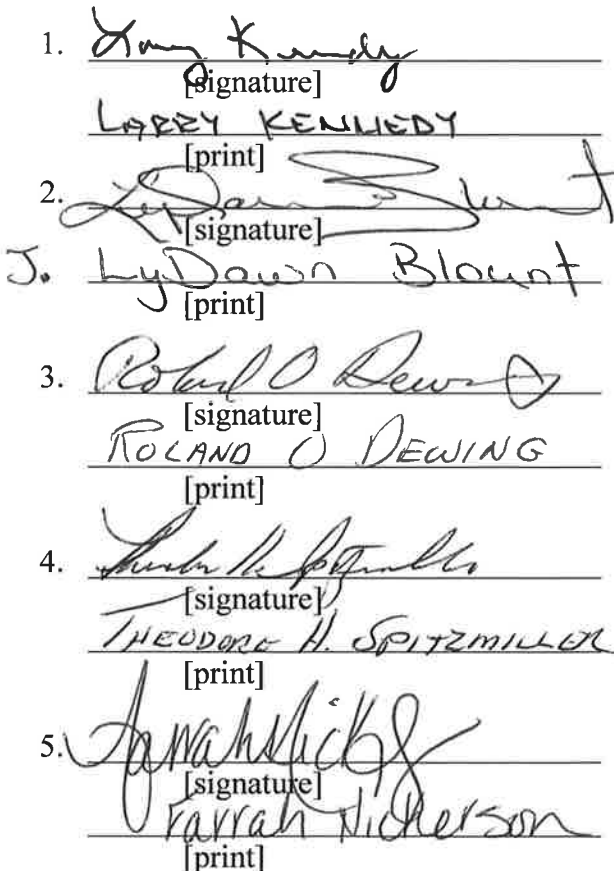 1. Larry Kennedy
[signature]
LARRY KENNEDY
[print]
2. LyDawn Blount
[signature]
J. LyDawn Blount
[print]
3. Roland O Dewing
[signature]
ROLAND O DEWING
[print]
4.
[signature]
THEODORE H. SPITZMILLER
[print]
5.
[signature]
Farrah Nickerson
[print]